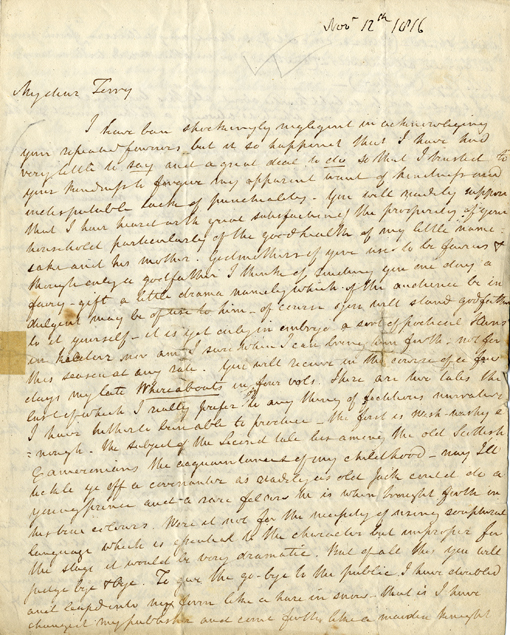 Novr 12th 1816
My dear Terry
I have been shockingly negligent in acknowledging
your repeated favours but it so happened that I have had
very little to say and a great deal to do so that I trusted to
your kindness to forgive my apparent want of kindness and
indisputable lack of punctuality. You will readily suppose
that I have heard with great satisfaction of the prosperity of your
household particularly of the good health of my little name-
sake and his mother. Godmothers of yore used to be fairies &
though only a godfather I think of sending you one day a
fairy-gift a little drama namely which if the audience be in
dulgent may be of use to him - of course you will stand godfather
to it yourself - it is yet only in embryo a sort of poetical Hans
in Kelder nor am I sure when I can bring him forth. not for
this season at any rate. You will receive in the course of a few
days my late Whereabouts in four vols. There are two tales the
last of which I really prefer to any thing of fictitious narrative
I have hitherto been able to produce - the first is wish-washy e
=nough. The subject of the second tale lies among the old Scottish
Cameronians the acquaintances of my childhood - nay Ill
tickle ye off a covenanter as readily as old Jack could do a
young prince and a rare fellow he is when brought forth in
his true colours. Were it not for the necessity of using scriptural
language which is essential to the character but improper for
the stage it would be very dramatic. But of all this you will
judge bye & bye. To give the go-bye to the public I have doubled
and leapd into my form like a hare in snow - that is I have
changed my publisher and come forth like a maiden knight